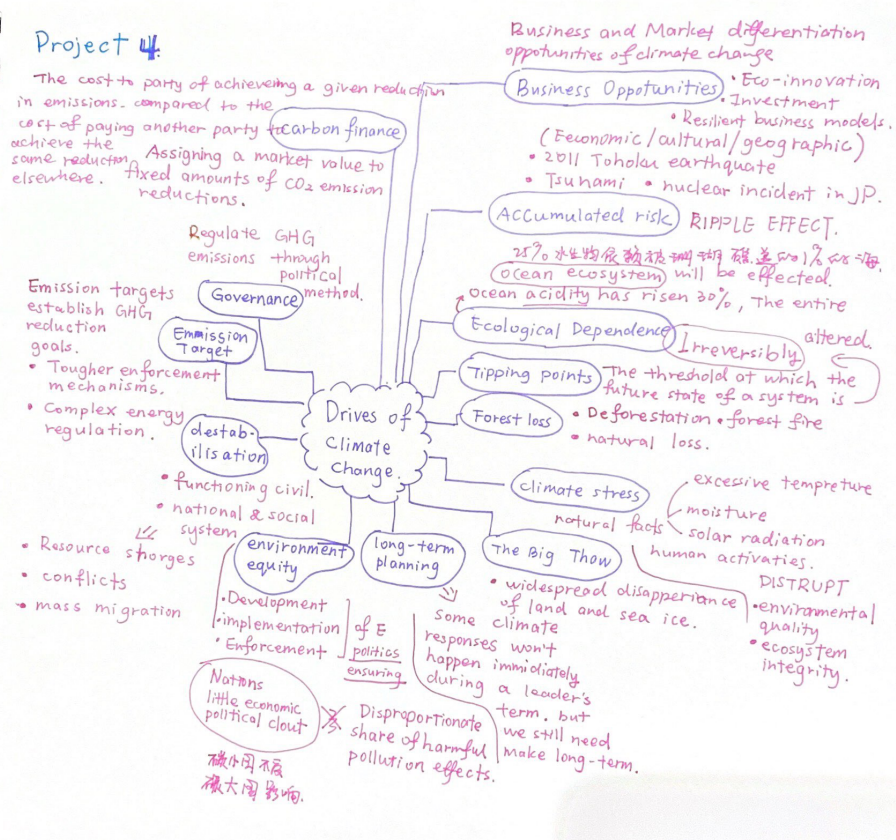 Project 4.
The cost to party of achieveing a given reduction
in emissions. compared to the
cost of paying another party to
achieve the
same reduction
elsewhere.
carbon finance
Assigning a market value to
fixed amounts of CO2 emission
reductions.
Business and Market differentiation
oppotunities of climate change
Business Oppotunities
• Eco-innovation
• Investment
• Resilient business models.
(Eeconomic/cultural/geographic)
• 2011 Toholau earthquate
• Tsunami • nuclear incident in JP.
Accumulated risk
RIPPLE EFFECT.
25% 水生物依赖
1%
ocean ecosystem will be effected.
Ocean acidity has risen 30%, The entire
Ecological Dependence
Irreversibly
altered.
Tipping points
The threshold at which the
future state of a system is
Forest loss
• Deforestation • forest fire
• natural loss.
Regulate GHG
emissions through
political
method.
Governance
Emission targets
establish GHG
reduction
goals.
• Tougher enforcement
mechanisms.
• Complex energy
regulation.
Emmission
Target
Drives of
climate
Change.
destab-
ilisation
• functioning civil.
• national & social
system
• Resource shorges
• conflicts
• mass migration
climate stress
excessive tempreture
moisture
solar radiation
natural facts
human activaties.
DISTRUPT
• environmental
quality
• ecosystem
integrity.
The Big Thow
• widespread disapperiance
of land and sea ice.
long-term
planning
some
climate
responses won't
happen immidiately
during a leader's
term. but
we still need
make long-term.
environment
equity
• Development
• implementation
• Enforcement
of E
politics
ensuring
Nations
little economic
political clout
Disproportionate
share of harmful
pollution effects.
大国影响.